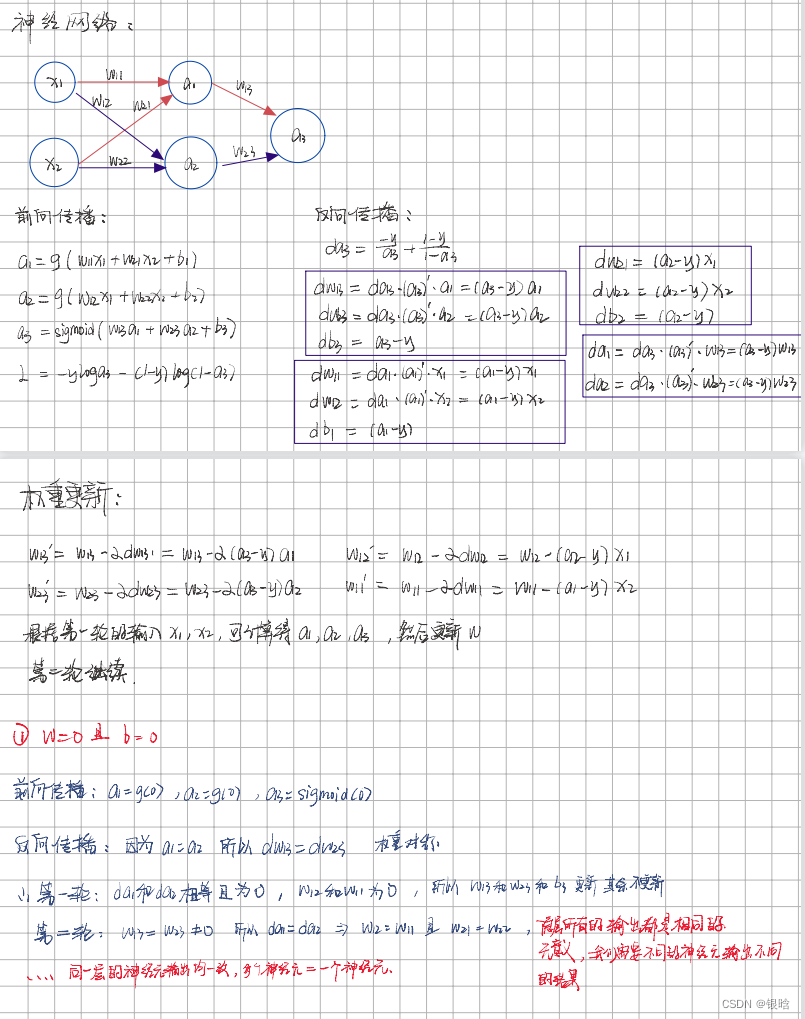 神经网络：
x1 w11 a1 w13
w12 w21 a3
x2 w22 a2 w23
前向传播：
a1 = g(w11x1+w21x2+b1)
a2 = g(w12x1+w22x2+b2)
a3 = sigmoid(w13a1+w23a2+b3)
L = -yloga3 - (1-y)log(1-a3)
反向传播：
da3 = -y/a3 + 1-y/1-a3
dw13 = da3·(a3)'·a1 = (a3-y)a1
dw23 = da3·(a3)'·a2 = (a3-y)a2
db3 = a3-y
dw11 = da1·(a1)'·x1 = (a1-y)x1
dw12 = da1·(a1)'·x2 = (a1-y)x2
db1 = (a1-y)
dw21 = (a2-y)x1
dw22 = (a2-y)x2
db2 = (a2-y)
da1 = da3·(a3)'·w13=(a3-y)w13
da2 = da3·(a3)'·w23=(a3-y)w23
权重更新：
w13' = w13-2dw131 = w13-2(a3-y)a1 w12' = w12-2dw12 = w12-(a2-y)x1
w23' = w23-2dw23 = w23-2(a3-y)a2 w11' = w11-2dw11 = w11-(a1-y)x2
根据第一轮的输入x1,x2,可计算得a1,a2,a3,然后更新w
第二轮继续.
① w=0 且 b=0
前向传播：a1=g(0),a2=g(0),a3=sigmoid(0)
反向传播：因为a1=a2 所以dw13=dw23 权重对称
第一轮：da1和da2相等且为0,w12和w11为0,所以w13和w23和b3更新 其余不更新
第二轮：w13=w23≠0 所以da1=da2 ⇒ w12=w11 且 w21=w22,
所有的输出都是相同的
无意义,我们需要不同的神经元输出不同
的结果
.... 同一层的神经元输出均一致,多个神经元=一个神经元.
CSDN @银晗